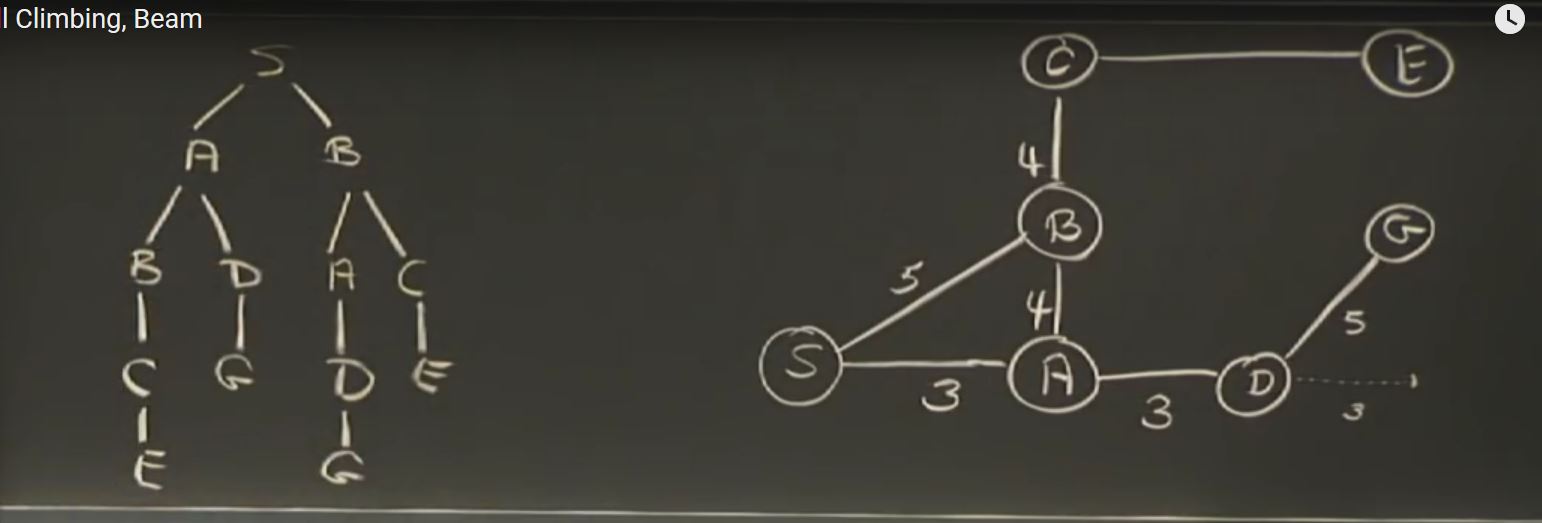 ll Climbing, Beam
S
A B
B D A C
C G D E
E G
C E
4
B G
5 4 5
S A D
3 3 3